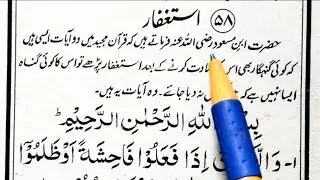 ۵۸ استغفار
حضرت ابن مسعود رضی اللہ عنہ فرماتے ہیں کہ قرآن مجید میں دو آیات ایسی ہیں
کہ کوئی گنہگار بھی اس کی تلاوت کرنے کے بعد استغفار پڑھے تو اس کا کوئی گناہ
ایسا نہیں ہے کہ نہ دیا جائے۔ دہ آیات یہ ہیں۔
بِسْمِ اللّٰهِ الرَّحْمٰنِ الرَّحِيْمِ
۱- وَالَّ اِذَا فَعَلُوْا فَاحِشَةً اَوْ ظَلَمُوْا